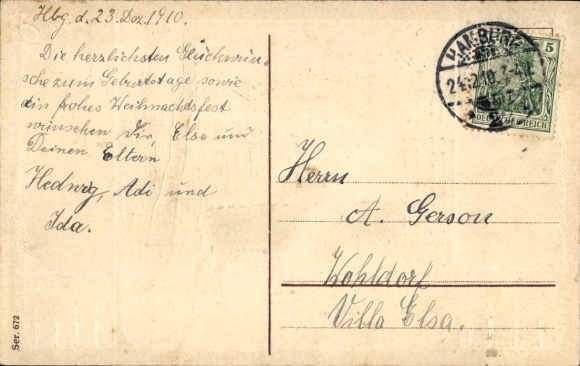 Hbg. d. 23. Dez. 1910.
Die herzlichsten Glückwün-
sche zum Geburtstage sowie
ein frohes Weihnachtsfest
wünschen Dir, Else und
Deinen Eltern
Hedwig, Adi und
Ida.
HAMBURG
5
DEUTSCHES REICH
Herrn
A. Gerson
Wohldorf
Villa Elsa.
Ser. 672